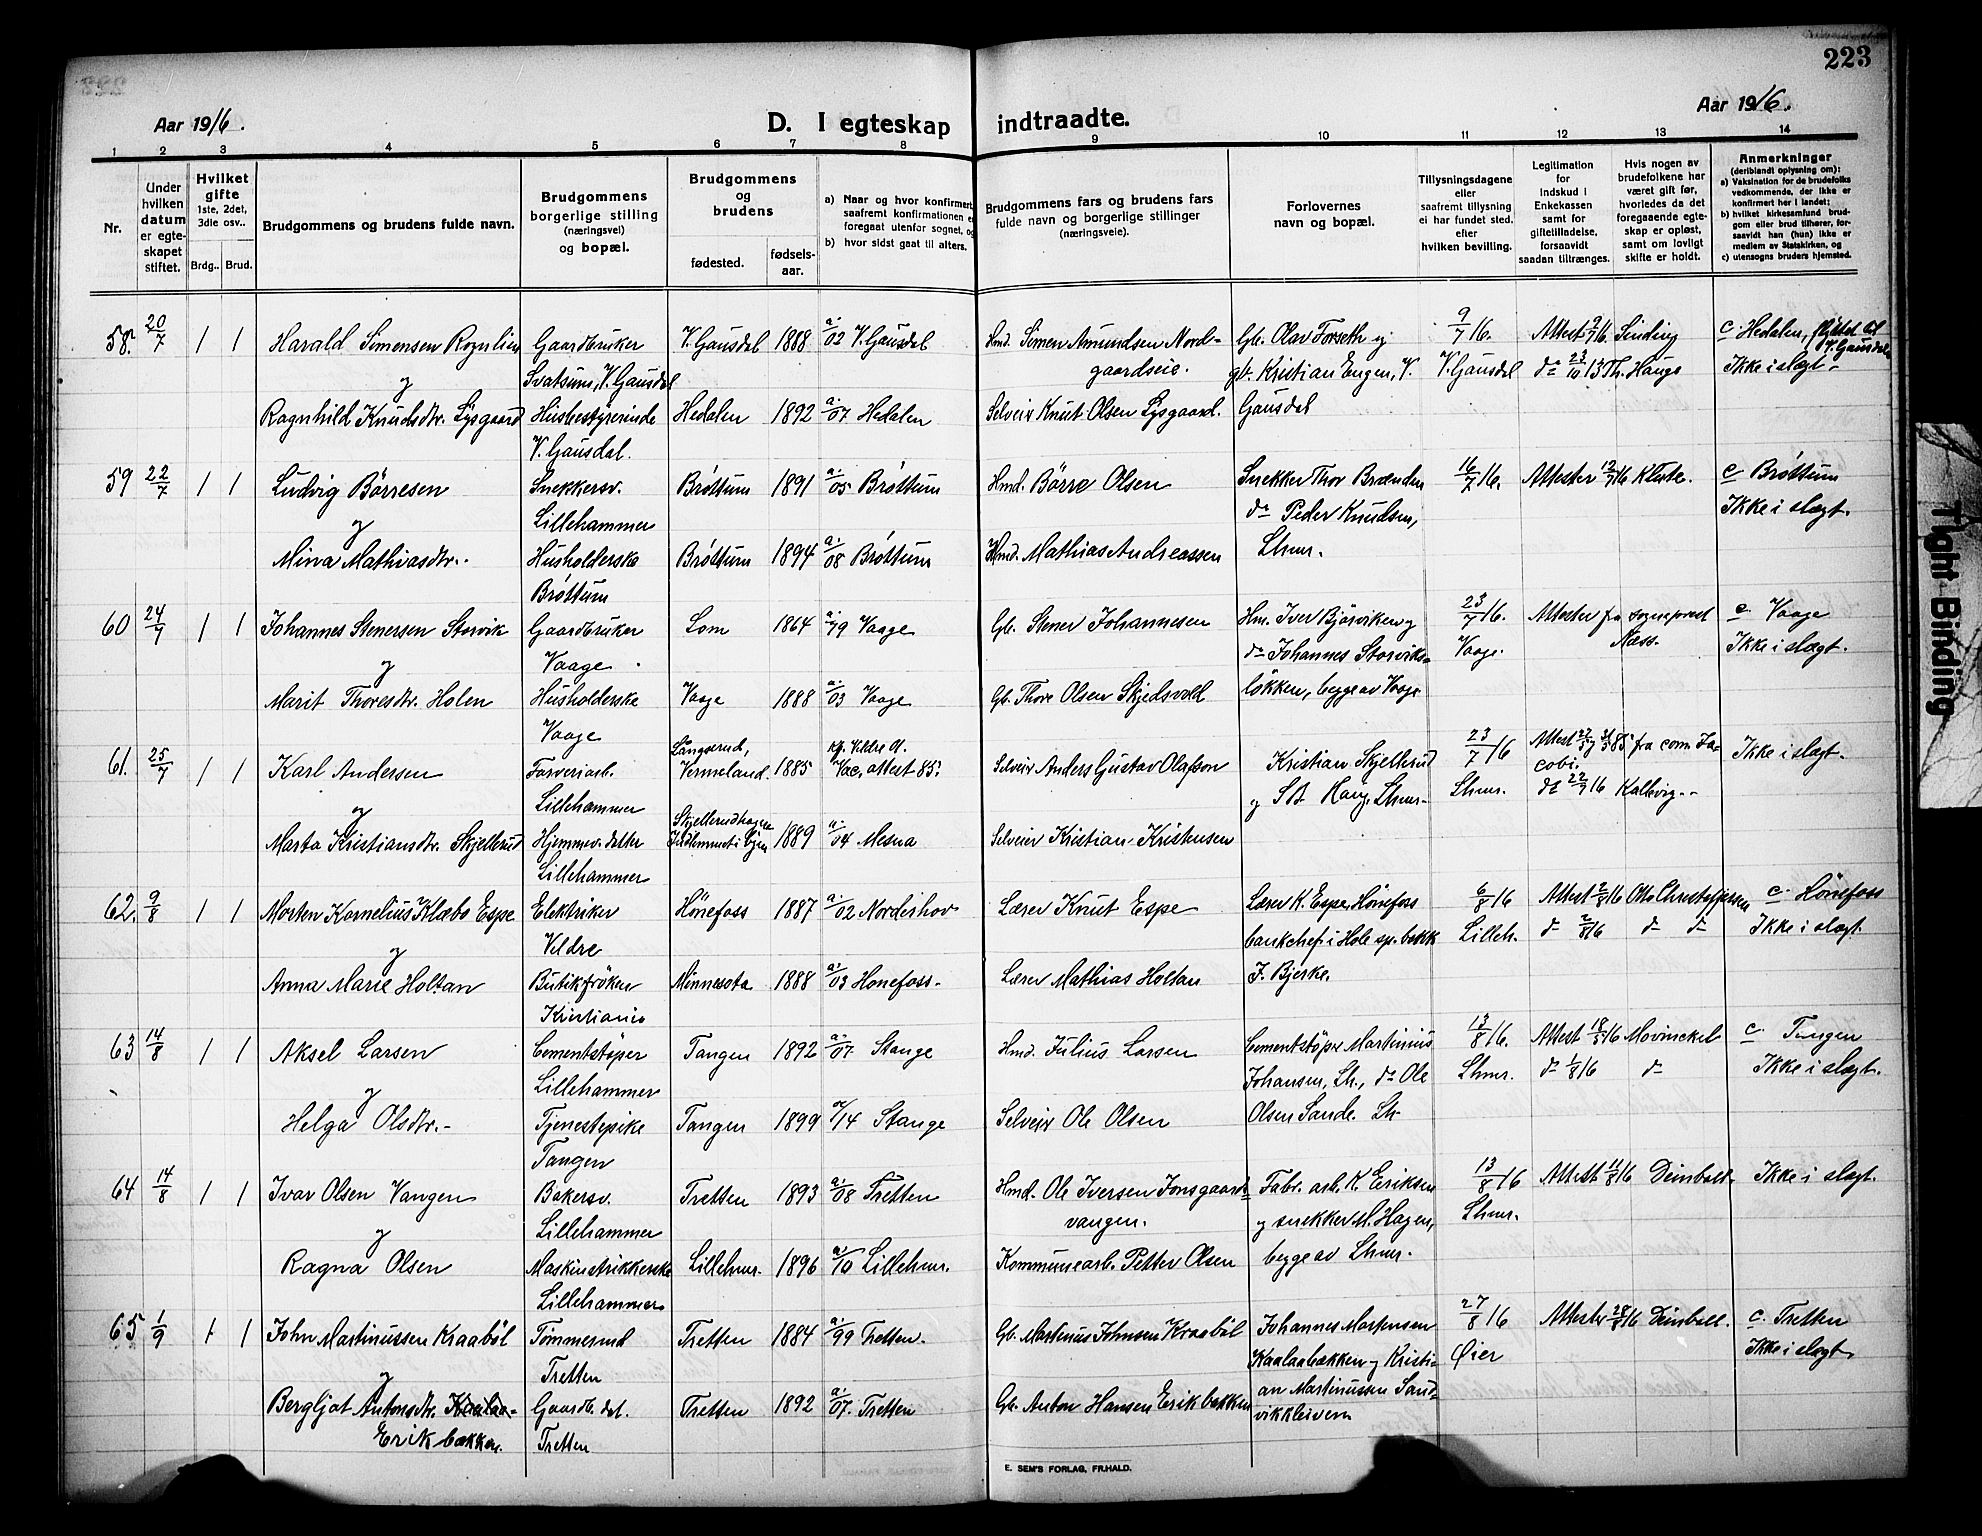 223
Aar 1916.
D. I egteskap indtraadte.
Aar 1916.
1 2 3 4 5 6 7 8 9 10 11 12 13 14
Nr.
Under hvilken datum er egteskapet stiftet.
Hvilket gifte 1ste, 2det, 3die osv..
Brdg.. Brud.
Brudgommens og brudens fulde navn.
Brudgommens borgerlige stilling (næringsvei) og bopæl.
Brudgommens og brudens
fødested.
fødselsaar.
a) Naar og hvor konfirmert, saafremt konfirmationen er foregaat utenfor sognet, og
b) hvor sidst gaat til alters.
Brudgommens fars og brudens fars fulde navn og borgerlige stillinger (næringsveie).
Forlovernes navn og bopæl.
Tillysningsdagene eller saafremt tillysning ei har fundet sted. efter hvilken bevilling.
Legitimation for Indskud i Enkekassen samt for giftetilladelse, forsaavidt saadan tiltrænges.
Hvis nogen av brudefolkene har været gift før, hvorledes da det foregaaende egteskap er opløst, samt om lovligt skifte er holdt.
Anmerkninger (deriblandt oplysning om):
a) Vaksination for de brudefolks vedkommende, der ikke er konfirmert her i landet;
b) hvilket kirkesamfund brudgom eller brud tilhører, forsaavidt han (hun) ikke er medlem av Statskirken, og
c) utensogns bruders hjemsted.
58. 20/7 1 1 Harald Simensen Rognlien Gaardbruker V. Gausdal 1888 a/02 V. Gausdal Hmd. Simen Amundsen Nord- Gb. Olav Forseth og 9/7 16. Attest 9/7 16 Sinding c Hedalen, flyttet til V. Gausdal
og Svatsum, V. Gausdal gaardseie. gb. Kristian Engen, V. V. Gausdal do 23/10 13 Th. Hauge Ikke i slegt.
Ragnhild Knudsdtr. Lysgaard Husbestyrerinde Hedalen 1892 a/07 Hedalen Selveier Knut Olsen Lysgaard. Gausdal
V. Gausdal.
59 22/7 1 1 Ludvig Börresen Snekkersv. Brøttum 1891 a/05 Brøttum Hmd. Börre Olsen Snekker Thor Brænden 16/7 16. Attester 12/7 16 Kleste. c Brøttum
og Lillehammer do Peder Knudsen, Ikke i slegt.
Mina Mathiasdtr. Husholderske Brøttum 1894 a/08 Brøttum Hmd. Mathias Andreassen Lhmr.
Brøttum
60 24/7 1 1 Johannes Stenersen Storvik Gaardbruker Lom 1864 a/79 Vaage Gb. Stener Johannesen Hm. Iver Bjørviken og 23/7 16. Attester fra sogneprest c. Vaage
og Vaage do Johannes Storviks- Vaage. Næss. Ikke i slegt.
Marit Thoresdtr. Holen Husholderske Vaage 1888 a/03 Vaage Gb. Thore Olsen Skjedsvold løkken, begge av Vaage
Vaage
61. 25/7 1 1 Karl Andersen Farveriarb. Långserud, Vermeland. 1885 Vac. attest 85. Selveier Anders Gustav Olafson Kristian Skjellerud 23/7 16 fra com. Jacobi. Ikke i slegt.
og Lillehammer og S B Haug, Lhmr. Lhmr. do 22/7 16 Kallevig.
Marta Kristiansdtr. Skjellerud Hjemmev. datter 1889 a/04 Mesna Selveier Kristian Kristensen
Lillehammer
62. 9/8 1 1 Morten Kornelius Klæbo Espe Elektriker Hönefoss 1887 a/02 Norderhov Lærer Knut Espe Lærer K. Espe, Hönefoss 6/8 16 Attest 2/8 16 Otto Christoffersen c. Hönefoss
og Vildre bankchef i Hole sp. bank Lilleh. do 2/8 16 do do Ikke i slegt.
Anna Marie Holtan Butikfröken Minnesota 1888 a/03 Hønefoss. Lærer Mathias Holtan J. Bjerke.
Kristiania
63 14/8 1 1 Aksel Larsen Cementstøper Tangen 1892 a/07. Stange Hmd. Julius Larsen Cementstøper Martinius 13/8 16. Attest 18/5 16 Movinckel c. Tangen
og Lillehammer Johansen, Lh., do Ole Lhmr. do 1/8 16 do Ikke i slegt.
Helga Olsdtr. Tjenestepike Tangen 1899 a/14 Stange Selveier Ole Olsen Olsen Sande. Lh
Tangen
64 14/8 1 1 Ivar Olsen Vangen Bakersv. Tretten 1893 a/08 Tretten Hmd. Ole Iversen Jonsgaards- Fabr. arb. K. Eriksen 13/8 16 Attest 11/8 16 Deinboll. Ikke i slegt.
og Lillehammer vangen. og snekker M. Hagen, Lhmr.
Ragna Olsen Maskinstrikkerske Lillehmr. 1896 a/10 Lillehmr. Kommunearb. Petter Olsen begge av Lhmr.
Lillehammer
65 1/9 1 1 John Martinussen Kraabøl Tømmermd Tretten 1884 a/99 Tretten. Gb. Martinus Johnsen Kraabøl Johannes Mortensen 27/8 16 Attester 28/8 16 Deinboll. c. Tretten
og Tretten Kaalaabækken og Kristi- Øier Ikke i slegt.
Bergljot Antonsdtr. Gaardb. dat. Tretten 1892 a/07. Tretten Gb. Anton Hansen Erikbakken an Martinussen Sand-
Erikbakken. Tretten vikkleiven
E. SEM'S FORLAG, FR.HALD.
Tight Binding